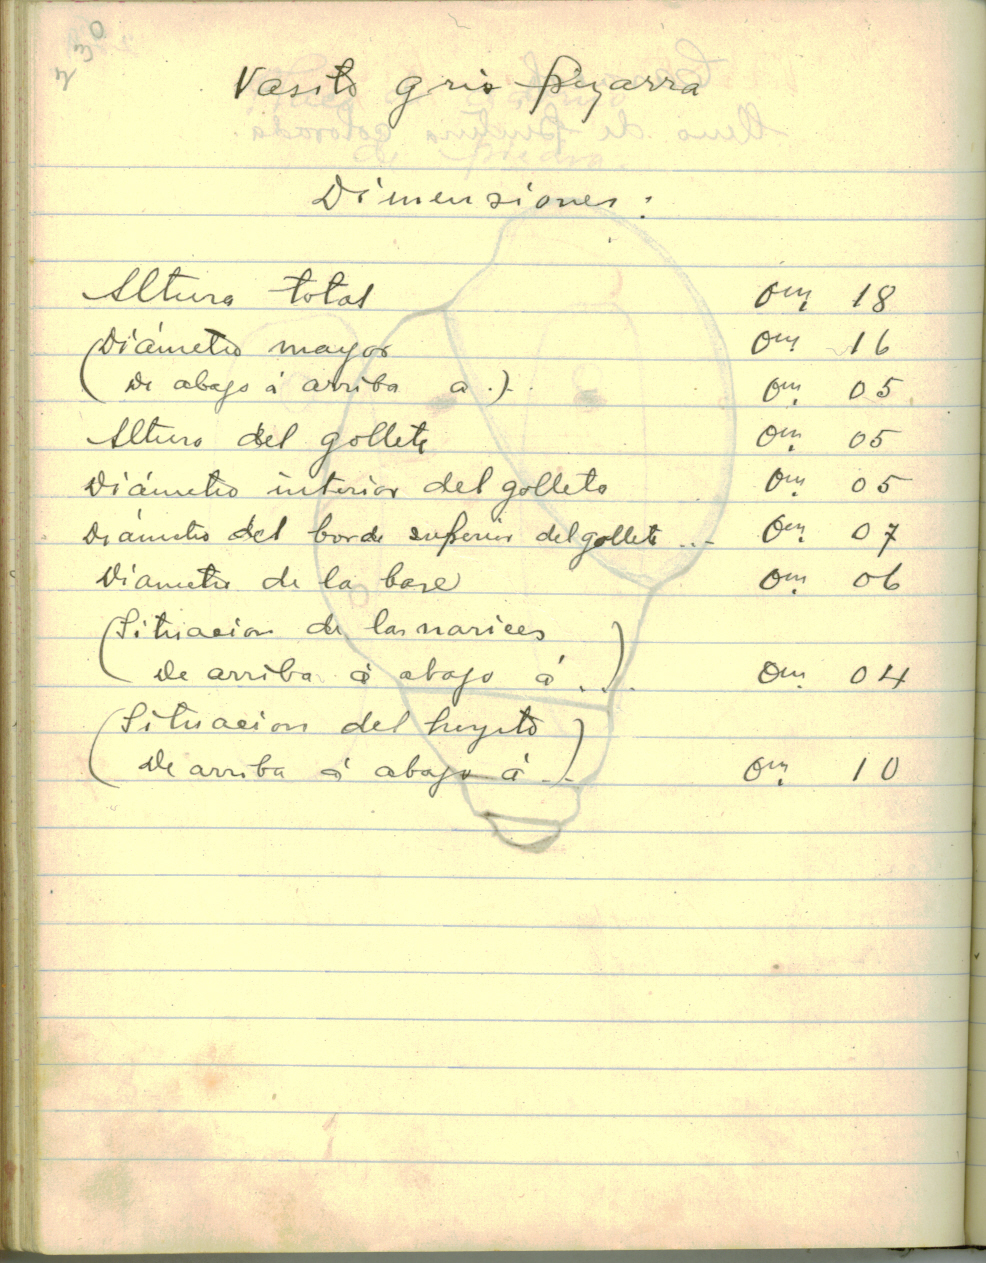 Vasito gris pizarra
Dimensiones:
Altura total 0m. 18
(Diámetro mayor 0m. 16
De abajo á arriba a.). 0m. 05
Altura del gollete 0m. 05
Diámetro interior del golleto 0m. 05
Diámetro del borde superior del gollete ... 0m. 07
Diametro de la base 0m. 06
(Situacion de las narices
De arriba á abajo á ..). 0m. 04
(Situacion del hoyito
De arriba á abajo á .). 0m. 10